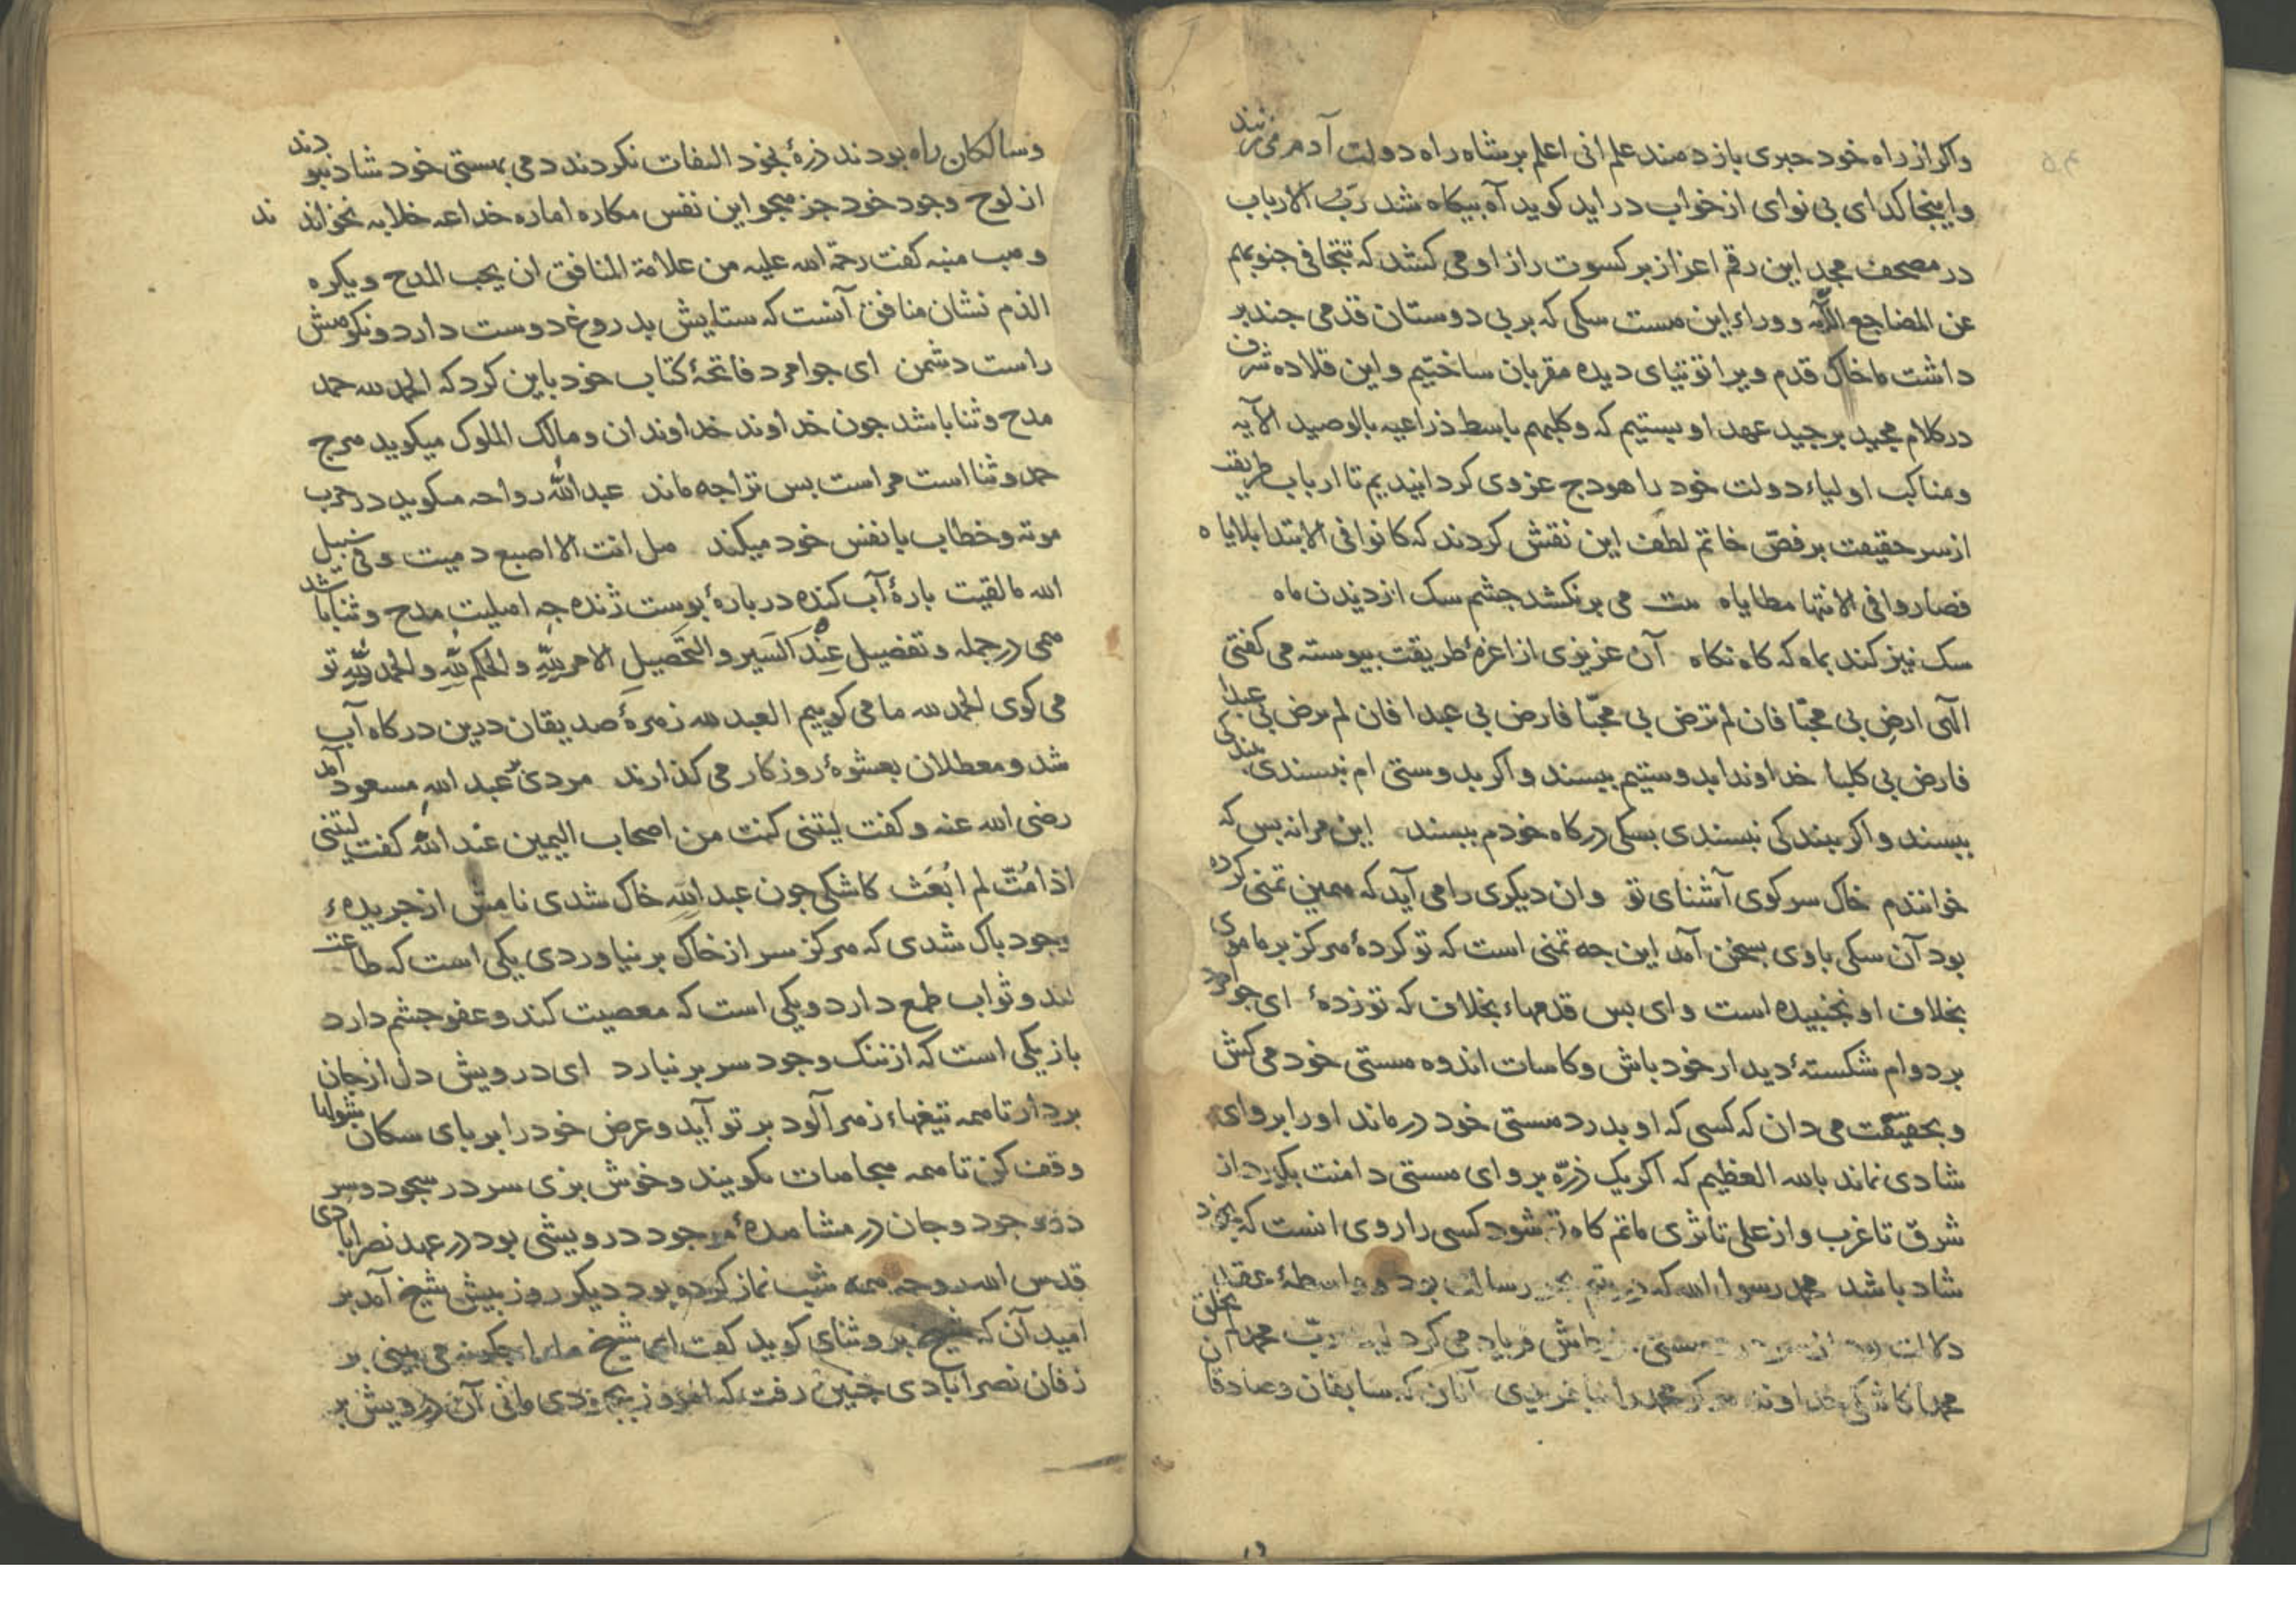 واکر از راه خود حبری باز دمند علم انی اعلم بر شاه راه دولت آدم می زنند
واینجا کدای بی نوای از خواب در اید کوید آه بیکاه شد ربّ الارباب
در مصحف مجد این رقم اعزاز بر کسوت راز او می کشد که تتجافی جنوبهم
عن المضاجع الآیه و وراء این مست سکی که بر پی دوستان قدمی جند بر
داشت ما خاک قدم ویرا توتیای دیده مقربان ساختیم و این قلاده شرف
در کلام مجید بر جید عهد او بستیم که وکلبهم باسط ذراعیه بالوصید الآیه
ومناکب اولیاء دولت خود را هودج عزوی کردانیدیم تا ارباب طریقت
از سر حقیقت بر فصّ خاتم لطف این نقش کردند که کانوا فی الابتدا بلایاه
فصاروا فی الانتها مطایاه می برنکشد جشم سک از دیدن ماه
سک نیز کند بماه که کاه نکاه آن عزیزی از اعزهٔ طریقت بیوسته می کفتی
الهی ارض بی محبّا فان لم ترض بی محبّا فارض بی عبدا فان لم ترض بی عبدا
فارض بی کلبا خداوندا بدوستیم ببسند واکر بدوستی ام نبسندی ببندکی
ببسند واکر ببندکی نبسندی بسکی درکاه خودم ببسند این مرانه بس که
خوانندم خاک سر کوی آشنای تو وان دیکری را می آید که همین تمنی کرده
بود آن سکی باوی بسخن آمد این جه تمنی است که تو کردهٔ هرکز بر ما موی
بخلاف او نجنبیده است وای بس قدمهاء بخلاف که تو زدهٔ ای جوامرد
بر دوام شکستهٔ دیدار خود باش وکاسات اندوه هستی خود می کش
وبحقیقت می دان که کسی که او بدرد هستی خود درماند او را بروای
شادی نماند بالله العظیم که اکر یک ذرّه بروای هستی دامنت بکیرد از
شرق تا غرب واز علی تا ثری ماتم کاه تو شود کسی را روی انست که بخود
شاد باشد محمد رسول الله که در یتیم بحر رسالت بود و واسطهٔ عقد
دلالت فریاد می کرد لیت ربّ محمد لم یخلق
محمدا کاشکی خداوند محمد را نیافریدی آنان که سابقان وصادقان
وسالکان راه بودند ذرهٔ بخود التفات نکردند دمی بهستی خود شاد نبودند
از لوح وجود خود جز هجو این نفس مکاره اماره خداعه خلابه نخواندند
وهب منبه کفت رحمة الله علیه من علامة المنافق ان یحب المدح ویکره
الذم نشان منافق آنست که ستایش بدروغ دوست دارد ونکوهش
راست دشمن ای جوامرد فاتحهٔ کتاب خود باین کرد که الحمد لله حمد
مدح وثنا باشد جون خداوند خداوندان ومالک الملوک میکوید هرج
حمد وثنا است مراست بس ترا جه ماند عبد الله رواحه میکوید در حرب
موته وخطاب با نفس خود میکند هل انت الا اصبع دمیت وفی سبیل
الله ما لقیت بارهٔ آب کنده در بارهٔ بوست ژنده جه اهلیت مدح وثنا باشد
همی در جمله وتفصیل عند السیر والتحصیل الامر لله والحکم لله والحمد لله تو
می کوی الحمد لله ما می کوییم العبد لله زمرهٔ صدیقان درین درکاه آب
شد ومعطلان بعشوهٔ روزکار می کذارند مردی بر عبد الله مسعود آمد
رضی الله عنه وکفت لیتنی کنت من اصحاب الیمین عند الله کفت لیتنی
اذا مُتّ لم اُبعَث کاشکی جون عبد الله خاک شدی نامش از جریدهء
وجود باک شدی که هرکز سر از خاک بر نیاوردی یکی است که طاعت
کند وثواب طمع دارد ویکی است که معصیت کند وعفو جشم دارد
باز یکی است که از ننک وجود سر بر نیارد ای درویش دل از جان
بردار تا همه تیغهاء زهر آلود بر تو آید وعرض خود را بر بای سکان
وقف کن تا همه هجاهات بکویند وخوش بزی سر در سجود وسر
در وجود وجان در مشاهدهٔ موجود درویشی بود در عهد نصرابادی
قدس الله روحه همه شب نماز کرده بود دیکر روز بیش شیخ آمد بر
امید آن که شیخ بر وثنای کوید کفت ایها شیخ ما را جکونه می بینی بر
زفان نصرابادی جنین رفت که امروز بجهودی مانی آن درویش بر